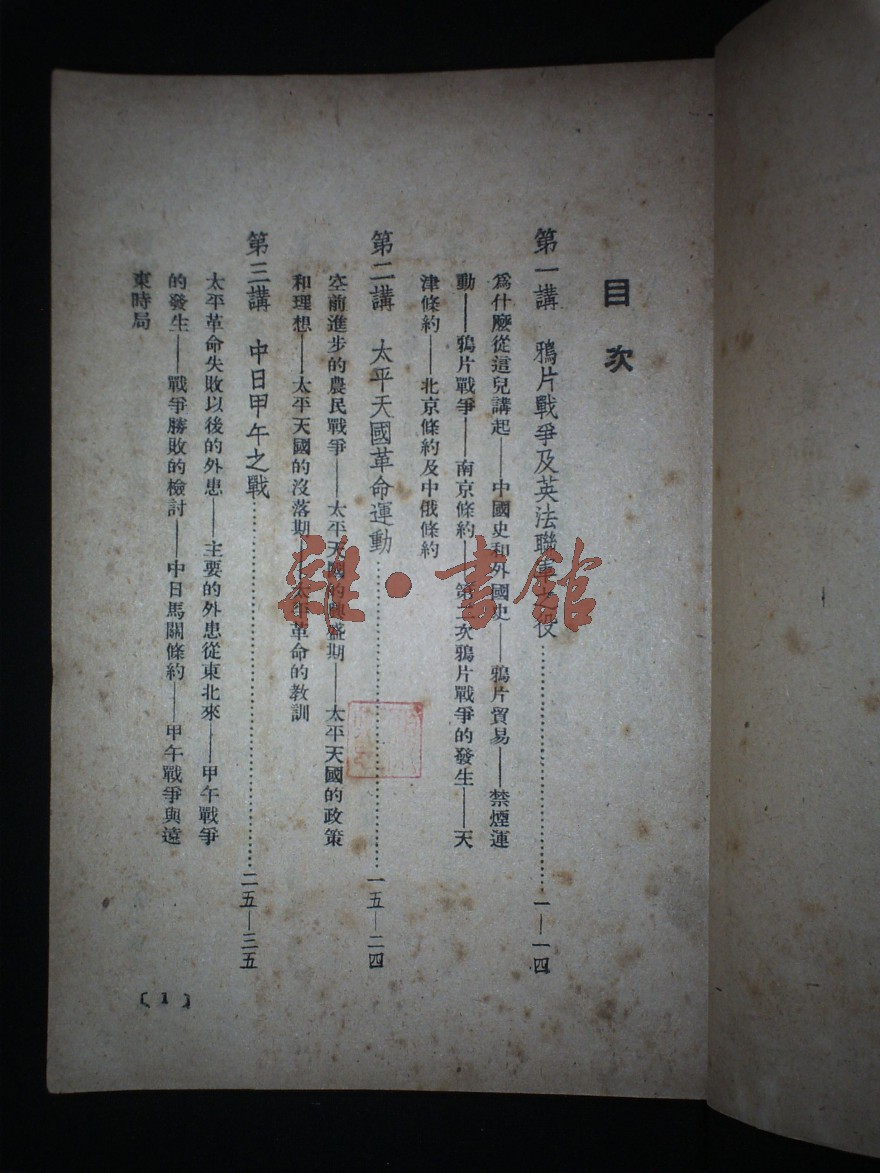 目次
第一講　鴉片戰爭及英法聯軍之役……一—一四
爲什麼從這兒講起——中國史和外國史——鴉片貿易——禁煙運
動——鴉片戰爭——南京條約——第二次鴉片戰爭的發生——天
津條約——北京條約及中俄條約
第二講　太平天國革命運動……一五—二四
空前進步的農民戰爭——太平天國的興盛期——太平天國的政策
和理想——太平天國的沒落期——太平革命的教訓
第三講　中日甲午之戰……二五—三五
太平革命失敗以後的外患——主要的外患從東北來——甲午戰爭
的發生——戰爭勝敗的檢討——中日馬關條約——甲午戰爭與遠
東時局
〔1〕
雜·書館